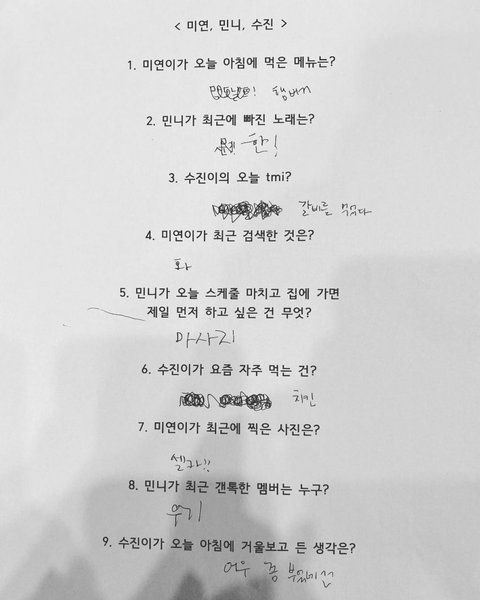 < 미연, 민니, 수진 >
1. 미연이가 오늘 아침에 먹은 메뉴는?
햄버거
2. 민니가 최근에 빠진 노래는?
한!
3. 수진이의 오늘 tmi?
갈비를 먹었다
4. 미연이가 최근 검색한 것은?
화
5. 민니가 오늘 스케줄 마치고 집에 가면
제일 먼저 하고 싶은 건 무엇?
마사지
6. 수진이가 요즘 자주 먹는 건?
치킨
7. 미연이가 최근에 찍은 사진은?
셀카!!
8. 민니가 최근 갠톡한 멤버는 누구?
우기
9. 수진이가 오늘 아침에 거울보고 든 생각은?
어우 좀